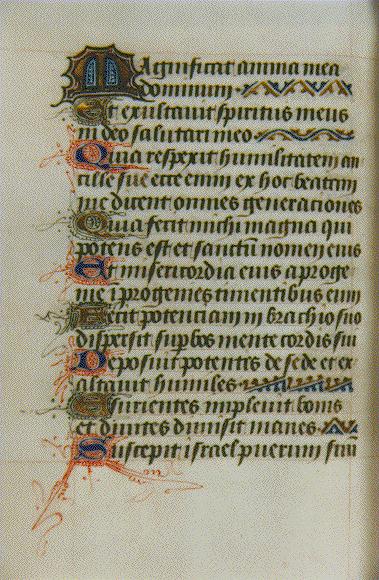 Magnificat anima mea
dominum
Et exultavit spiritus meus
in deo salutari meo
Quia respexit humilitatem an
cille sue ecce enim ex hoc beatam
me dicent omnes generationes
Quia fecit michi magna qui
potens est et sanctū nomen eius
Et misericordia eius a proge
nie ī progenies timentibus eum
Fecit potenciam in brachio suo
dispersit suꝑbos mente cordis sui
Deposuit potentes de sede et ex
altavit humiles
Esurientes implevit bonis
et divites dimisit inanes
Suscepit israel puerum suū